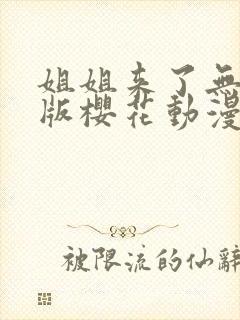 姐姐来了無
版櫻花動漫
被限流的仙辭